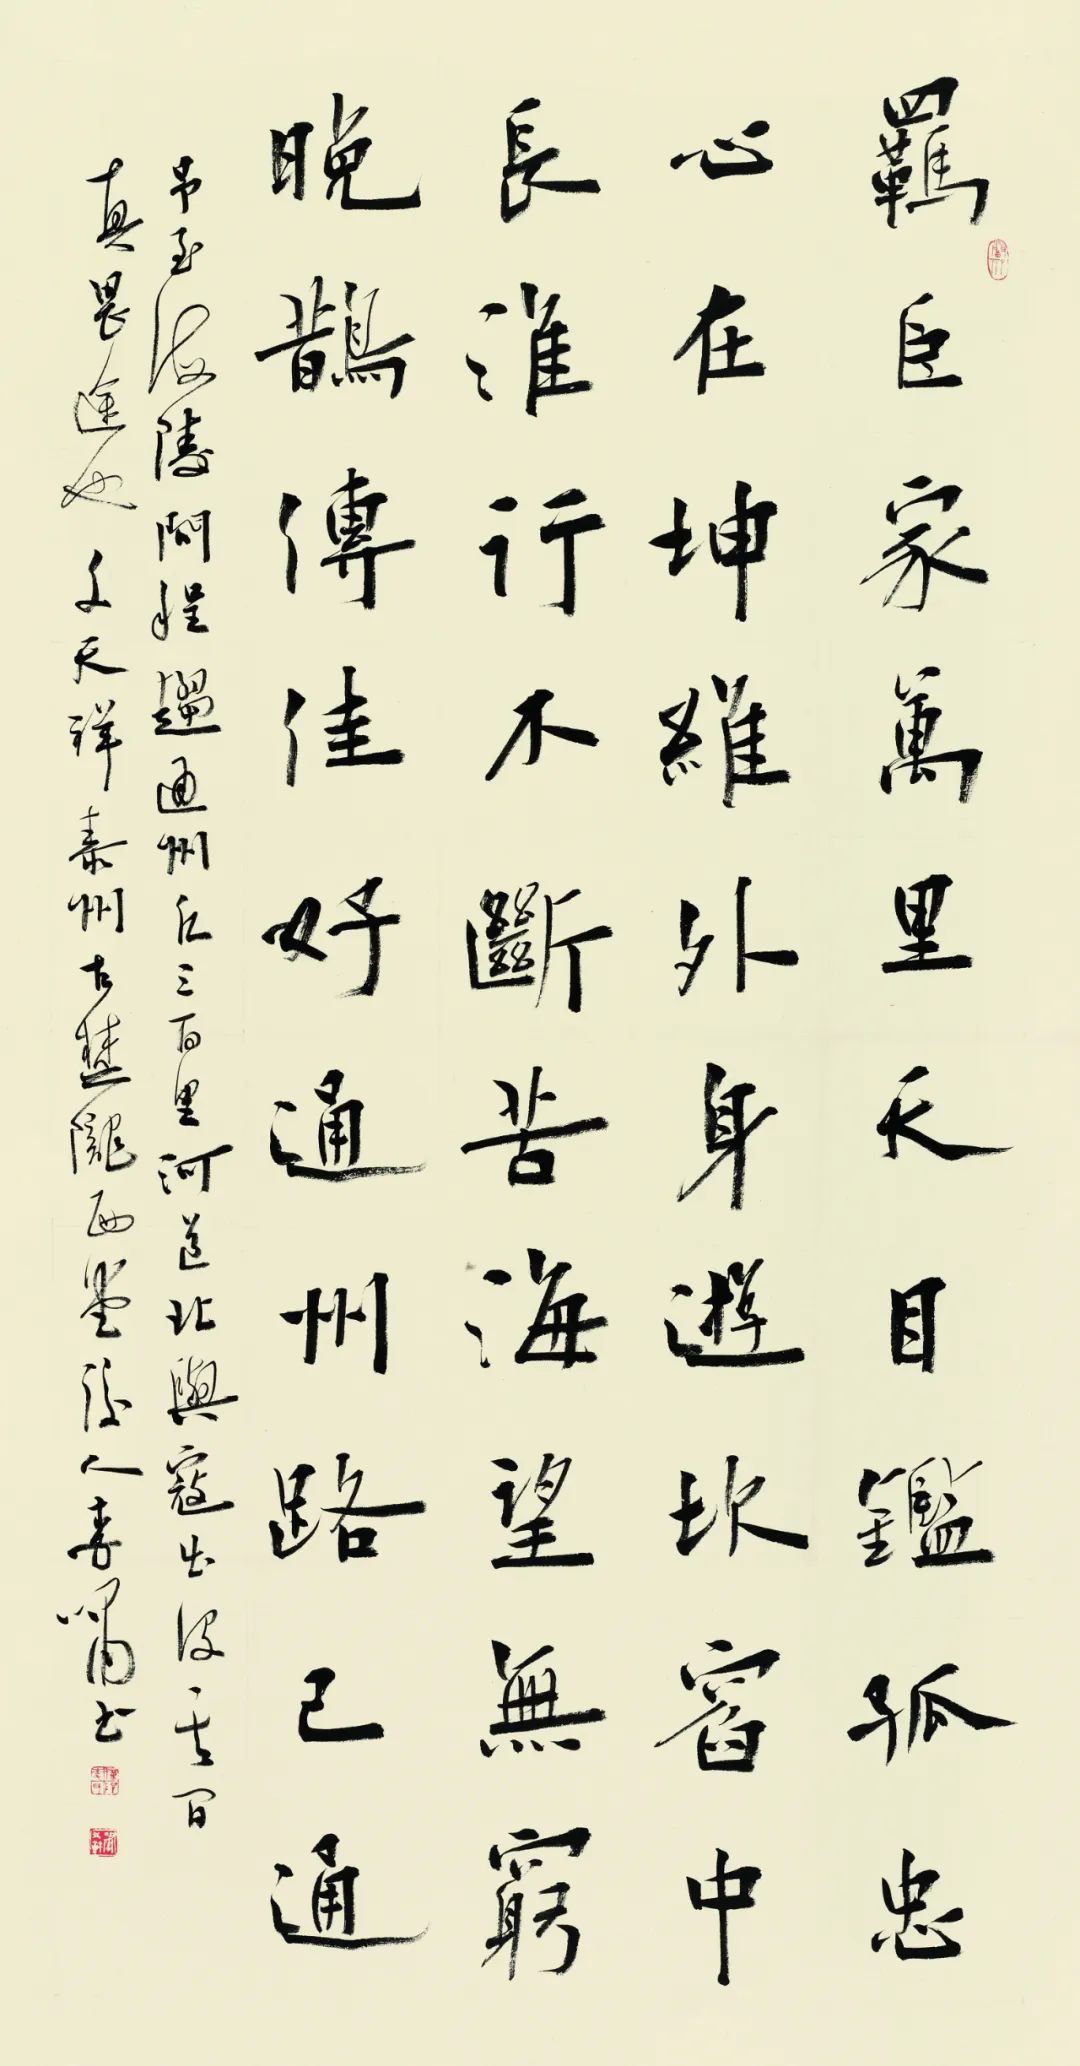 羈臣家萬里天目鑑孤忠
心在坤維外身遊坎窞中
長淮行不斷苦海望無窮
晚鵲傳佳好通州路已通
至海陵問程趨通州凡三百里河道北與寇出沒其間
真畏途也 文天祥泰州 古楚隴西堂後人李嘯書